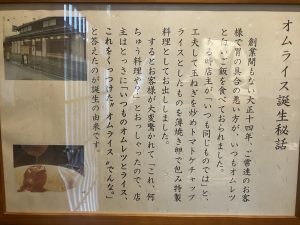 オムライス誕生秘話
創業間もない大正十四年、ご常連のお客
様で胃の具合の悪い方が、いつもオムレツ
とご飯を食べておられました。
ある時店主が「いつも同じものでは」と、
工夫して玉ねぎを炒めトマトケチャップ
ライスとしたものを薄焼き卵で包み特製
料理としてお出ししました。
するとお客様が大変驚かれて「これ、何
ちゅう料理や?」とおっしゃったので、店
主はとっさに「いつものオムレツとライス、
これをくっつけた〝オムライス〟でんな。」
と答えたのが誕生の由来です。